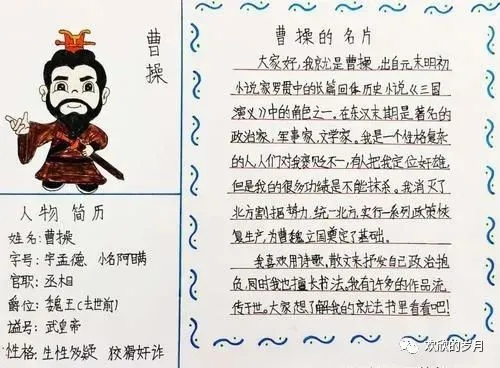 曹操
人物简历
姓名:曹操
字号:字孟德、小名阿瞒
官职:丞相
爵位:魏王(去世前)
谥号:武皇帝
性格:生性多疑 狡猾奸诈
曹操的名片
大家好,我就是曹操,出自元末明初
小说家罗贯中的长篇回体历史小说《三国
演义》中的角色之一。在东汉末期是著名的
政治家,军事家,文学家。我是一个性格复杂
的人,人们对我褒贬不一,有人把我定位奸雄,
但是我的很多功绩是不能抹杀。我消灭了
北方割据势力,统一北方,实行一系列政策恢
复生产,为曹魏立国奠定了基础。
我喜欢用诗歌、散文来抒发自己政治抱
负,同时我也擅长书法,我有许多的作品流
传于世。大家想了解我的就去书里看看吧!
欢欣的岁月